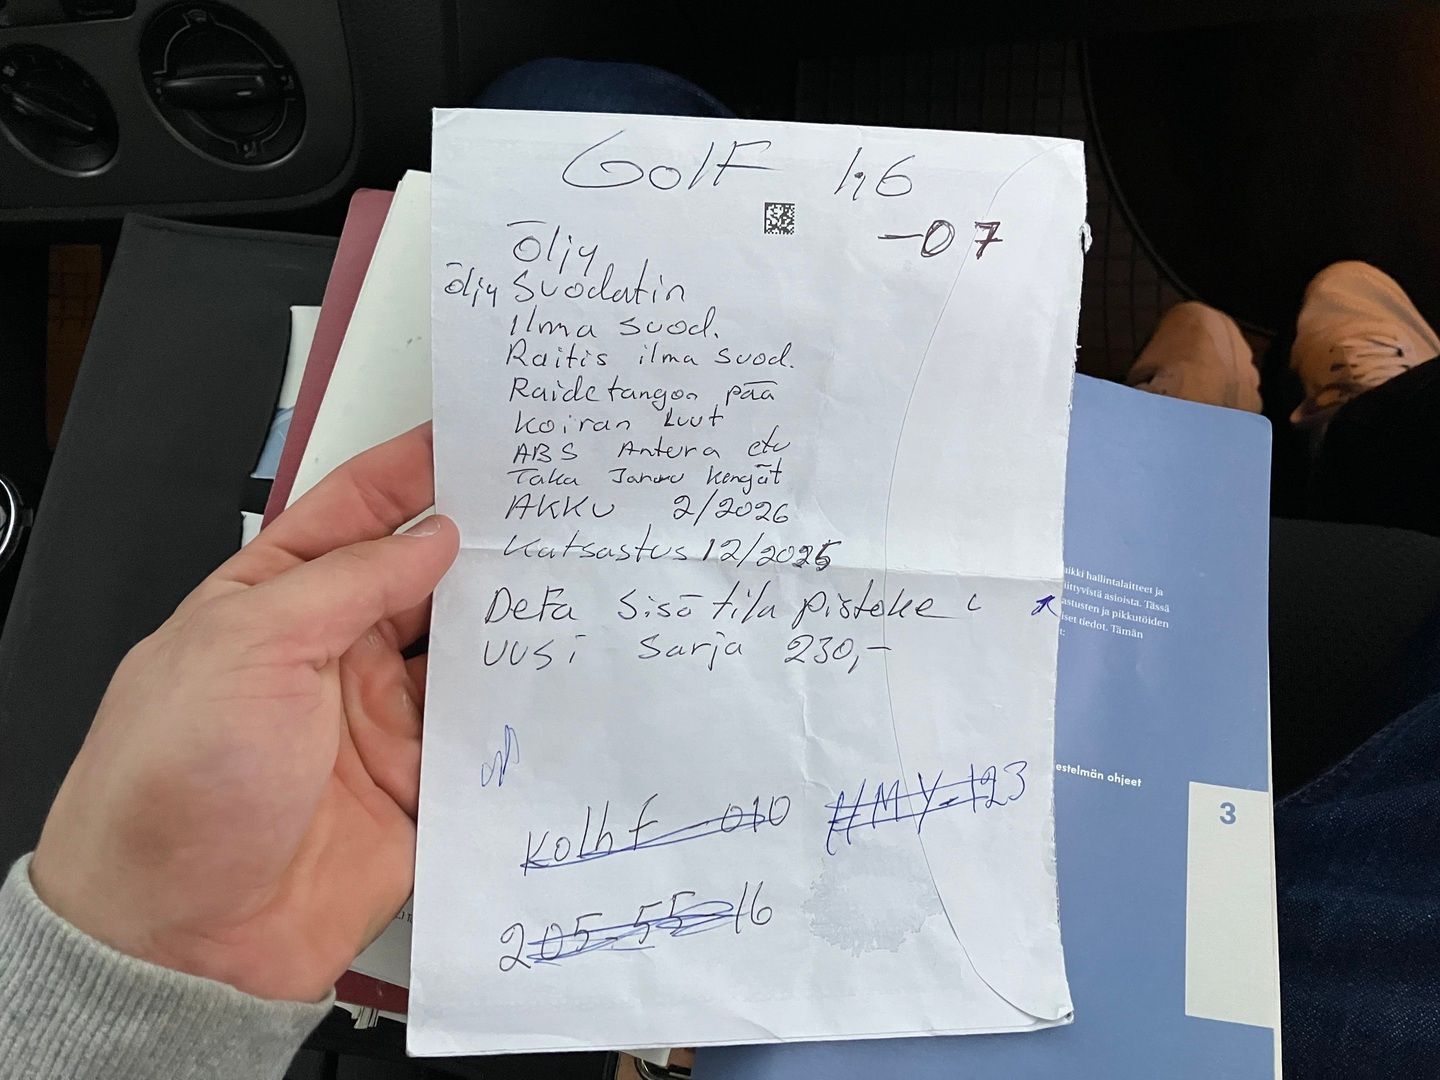 Golf 1,6
-07
Öljy
öljy Suodatin
Ilma suod.
Raitis ilma suod.
Raidetangon pää
Koiran luut
ABS Antura etu
Taka Jarru kengät
AKKU 2/2026
Katsastus 12/2025
DeFa Sisä tila pistoke
uusi sarja 230,-
010
HMY-123
205-55-16
aikki hallintalaitteet ja
liittyvistä asioista. Tässä
astusten ja pikkutöiden
iset tiedot. Tämän
estelmän ohjeet
3